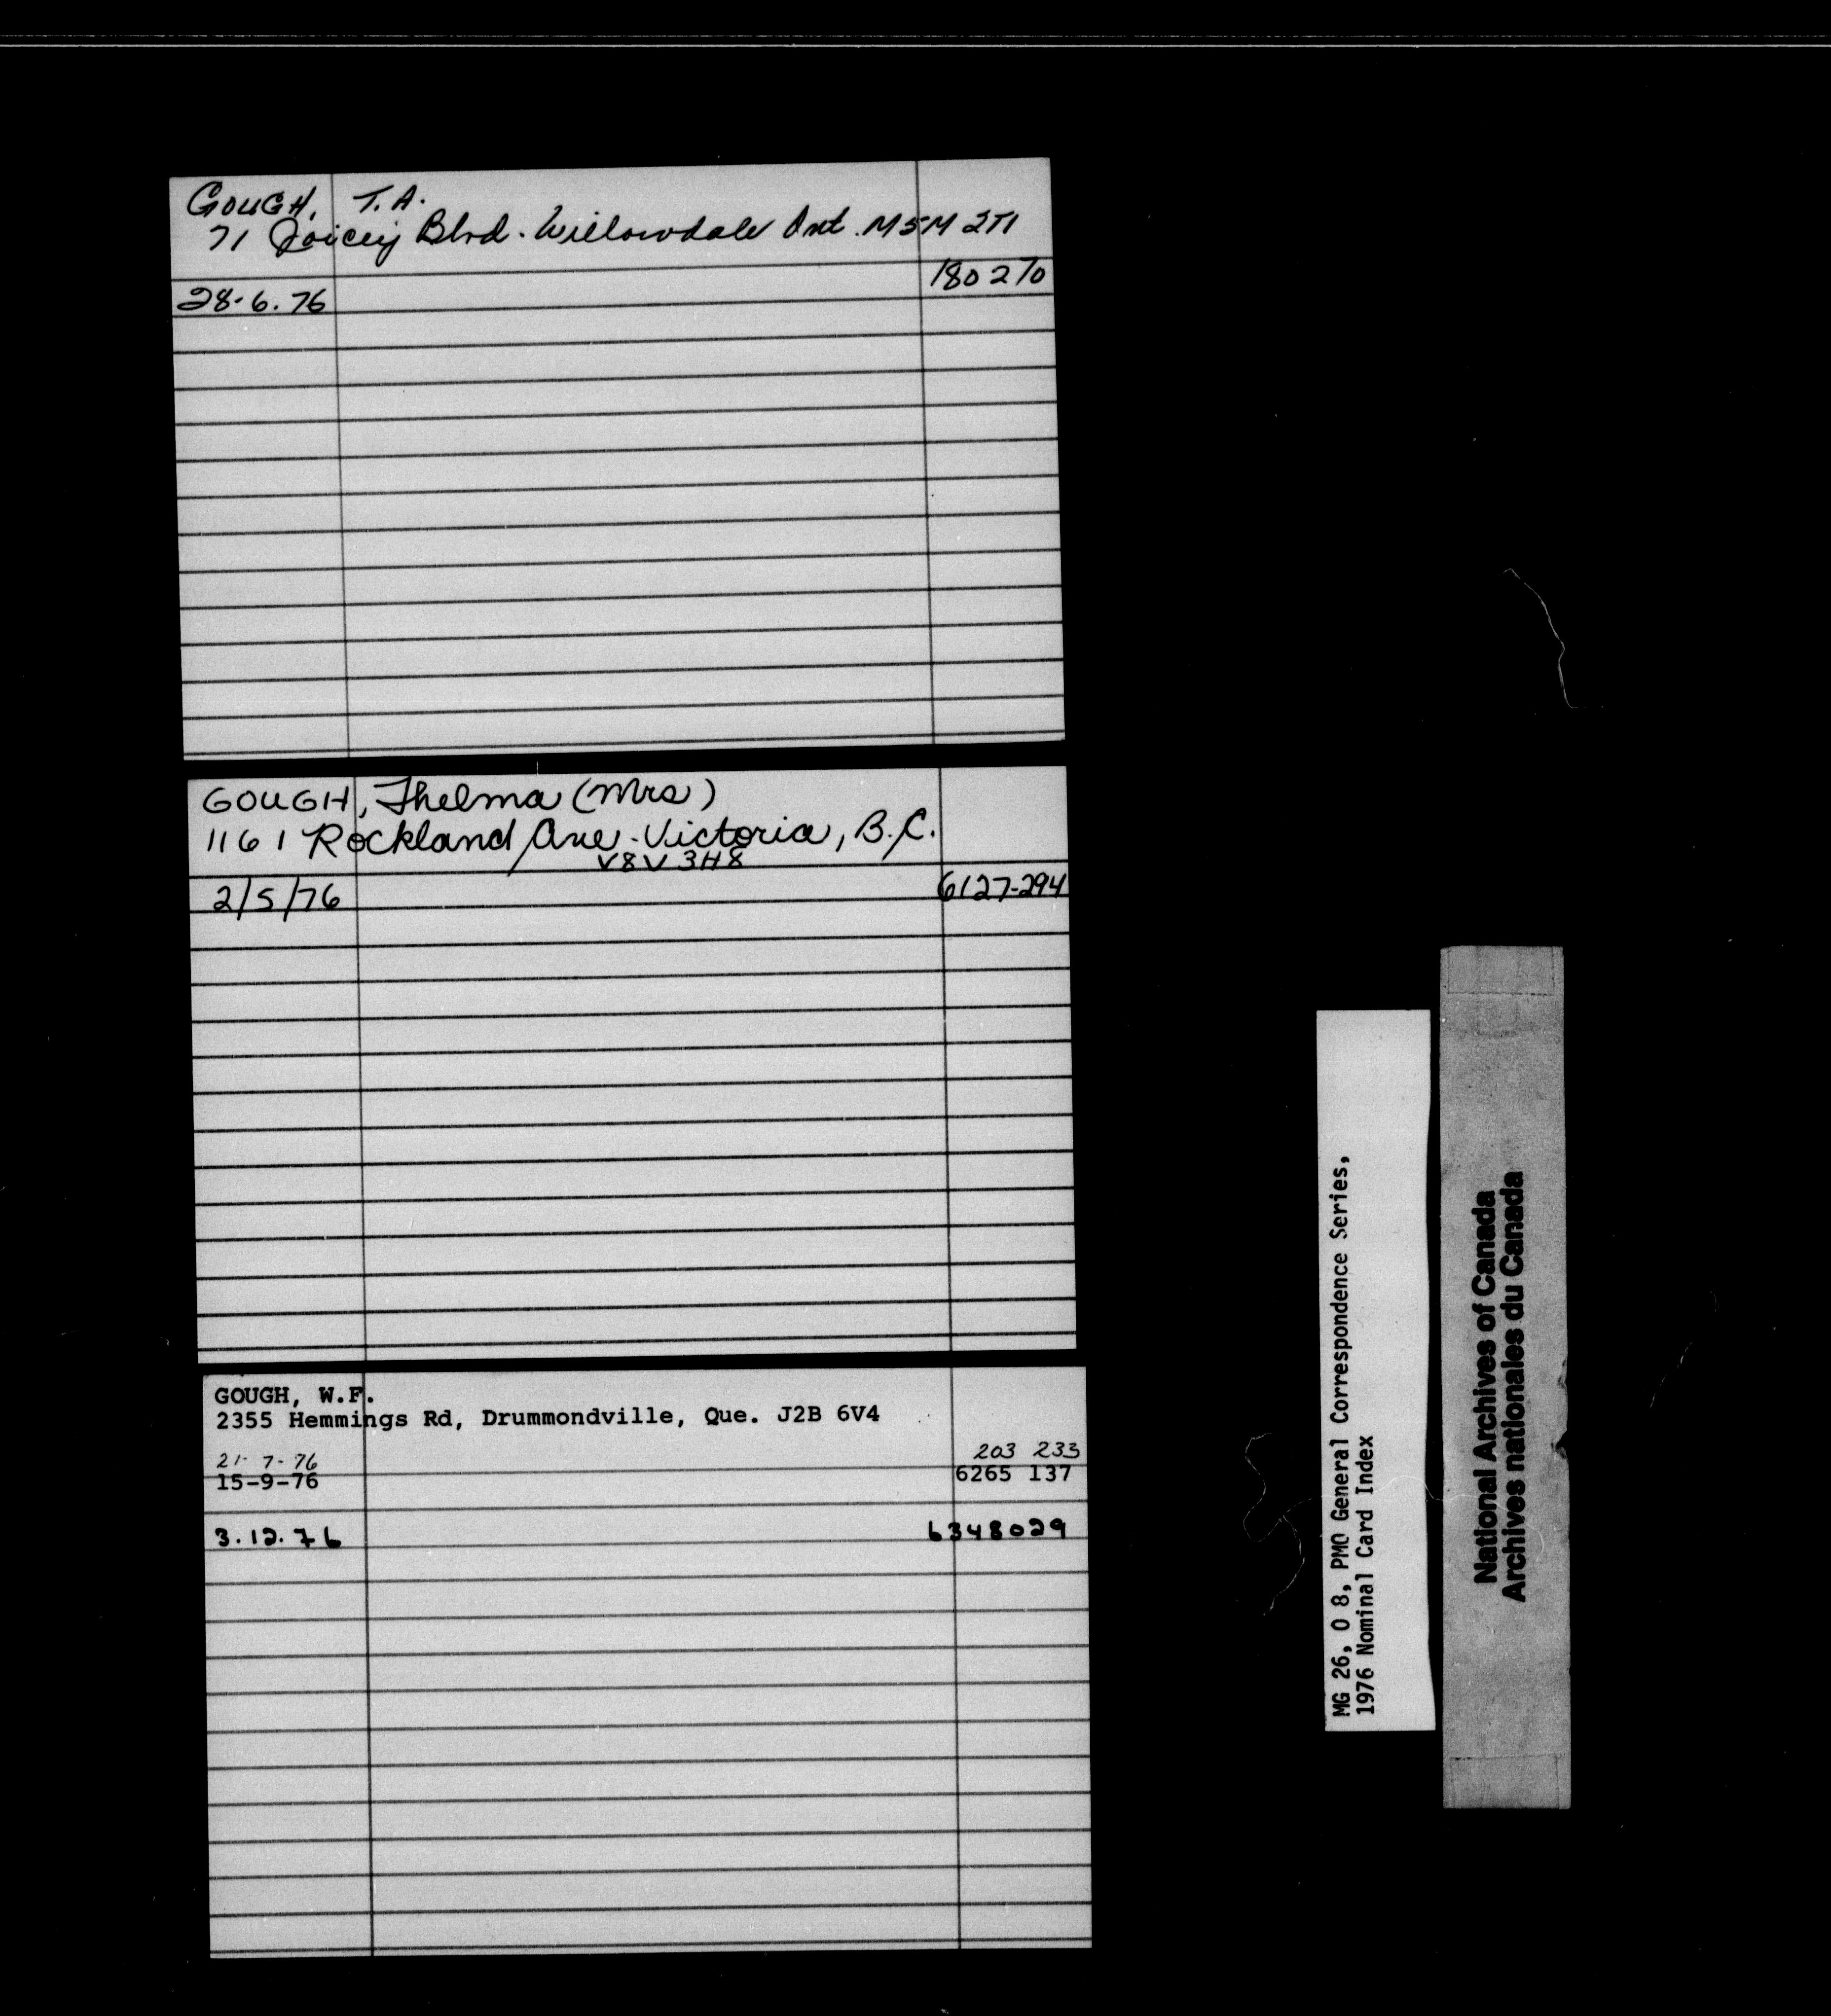 GOUGH, T.A.
71 Joicey Blvd. Willowdale Ont. M5M 2T1
180 270
28-6.76
GOUGH, Thelma (Mrs)
1161 Rockland Ave. Victoria, B.C.
V8V 3H8
2/5/76 6127-294
GOUGH, W.F.
2355 Hemmings Rd, Drummondville, Que. J2B 6V4
21-7-76 203 233
15-9-76 6265 137
3.12.76 6348029
MG 26, O 8, PMO General Correspondence Series,
1976 Nominal Card Index
National Archives of Canada
Archives nationales du Canada